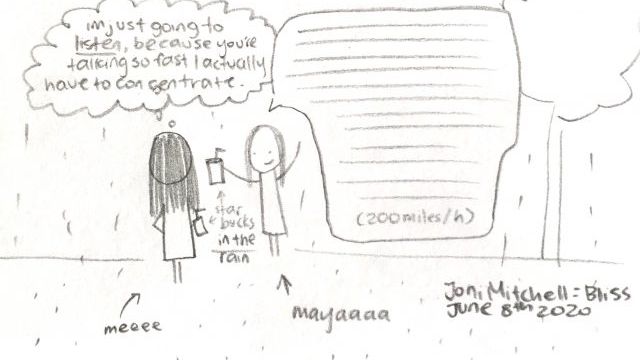 im just going to
listen, because you're
talking so fast I actually
have to consentrate.
(200 miles/h)
star
bucks
in the
rain
meeee
mayaaaa
Joni Mitchell = Bliss
June 8th 2020